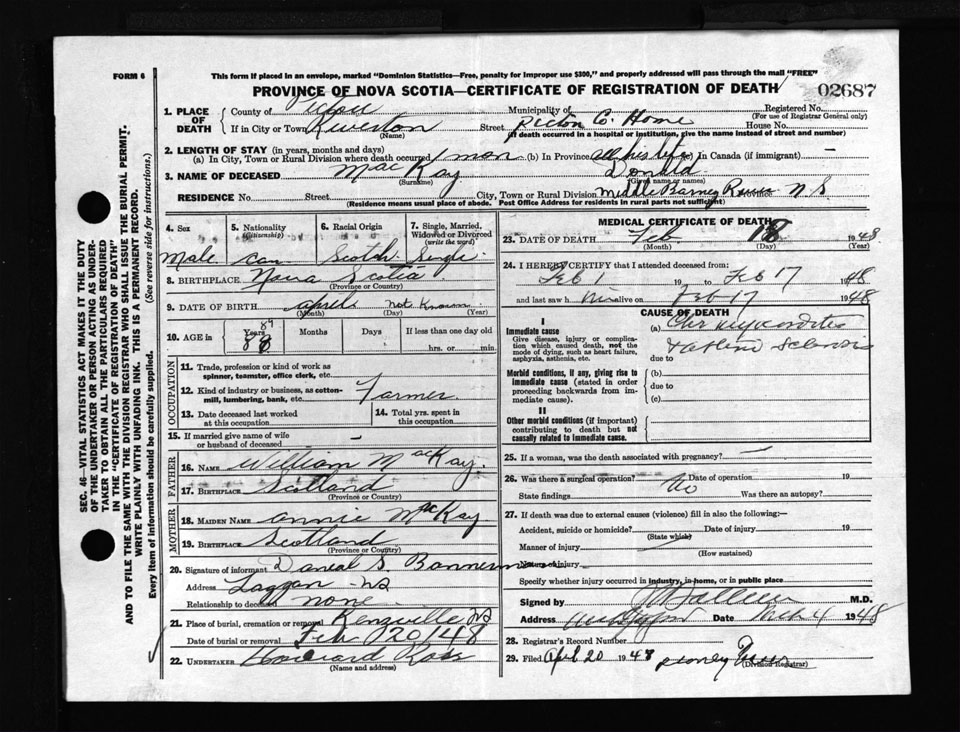 FORM 6
This form if placed in an envelope, marked "Dominion Statistics—Free, penalty for improper use $300," and properly addressed will pass through the mail "FREE"
PROVINCE OF NOVA SCOTIA—CERTIFICATE OF REGISTRATION OF DEATH
02687
SEC. 46—VITAL STATISTICS ACT MAKES IT THE DUTY
OF THE UNDERTAKER OR PERSON ACTING AS UNDER-
TAKER TO OBTAIN ALL THE PARTICULARS REQUIRED
IN THE "CERTIFICATE OF REGISTRATION OF DEATH"
AND TO FILE THE SAME WITH THE DIVISION REGISTRAR WHO SHALL ISSUE THE BURIAL PERMIT.
WRITE PLAINLY WITH UNFADING INK. THIS IS A PERMANENT RECORD.
Every item of information should be carefully supplied. (See reverse side for instructions.)
1. PLACE OF DEATH
County of Pictou Municipality of Registered No.
(For use of Registrar General only)
If in City or Town Riverton Street Pictou Co. Home House No.
(Name) (If death occurred in a hospital or institution, give the name instead of street and number)
2. LENGTH OF STAY (in years, months and days)
(a) In City, Town or Rural Division where death occurred 1 mon (b) In Province all his life (c) In Canada (if immigrant) —
3. NAME OF DECEASED MacKay Donald
(Surname) (Given name or names)
RESIDENCE No. Street City, Town or Rural Division Middle Barney River Province N.S
(Residence means usual place of abode. Post Office Address for residents in rural parts not sufficient)
4. Sex
Male
5. Nationality
(Citizenship)
Can
6. Racial Origin
Scotch
7. Single, Married,
Widowed or Divorced
(write the word)
Single
8. BIRTHPLACE Nova Scotia
(Province or Country)
9. DATE OF BIRTH April not known
(Month) (Day) (Year)
10. AGE in
Years
Months
Days
If less than one day old
hrs. or min.
OCCUPATION
11. Trade, profession or kind of work as
spinner, teamster, office clerk, etc.
12. Kind of industry or business, as cotton-
mill, lumbering, bank, etc.
Farmer
13. Date deceased last worked
at this occupation
14. Total yrs. spent in
this occupation
15. If married give name of wife
or husband of deceased —
FATHER
16. NAME William MacKay
17. BIRTHPLACE Scotland
(Province or Country)
MOTHER
18. MAIDEN NAME Annie MacKay
19. BIRTHPLACE Scotland
(Province or Country)
20. Signature of informant Daniel S. Bannerman
Address Laggan NS
Relationship to deceased none
21. Place of burial, cremation or removal Kenzville NS
Date of burial or removal Feb 20/48
22. UNDERTAKER Howard Ross
(Name and address)
MEDICAL CERTIFICATE OF DEATH
23. DATE OF DEATH Feb 18 1948
(Month) (Day) (Year)
24. I HEREBY CERTIFY that I attended deceased from:
Feb 1 19 to Feb 17 1948
and last saw him alive on Feb 17 1948
CAUSE OF DEATH
I
Immediate cause
Give disease, injury or complica-
tion which caused death, not the
mode of dying, such as heart failure,
asphyxia, asthenia, etc.
(a) Chr myocarditis
due to
Morbid conditions, if any, giving rise to
immediate cause (stated in order
proceeding backwards from im-
mediate cause).
(b)
due to
(c)
II
Other morbid conditions (if important)
contributing to death but not
causally related to immediate cause.
25. If a woman, was the death associated with pregnancy? —
26. Was there a surgical operation? No Date of operation 19
State findings Was there an autopsy?
27. If death was due to external causes (violence) fill in also the following:—
Accident, suicide or homicide? Date of injury 19
(State which)
Manner of injury
(How sustained)
Nature of injury
Specify whether injury occurred in industry, in home, or in public place
Signed by M.D.
Address Date Mch 4 1948
28. Registrar's Record Number
29. Filed April 20 1948 Sidney
(Division Registrar)